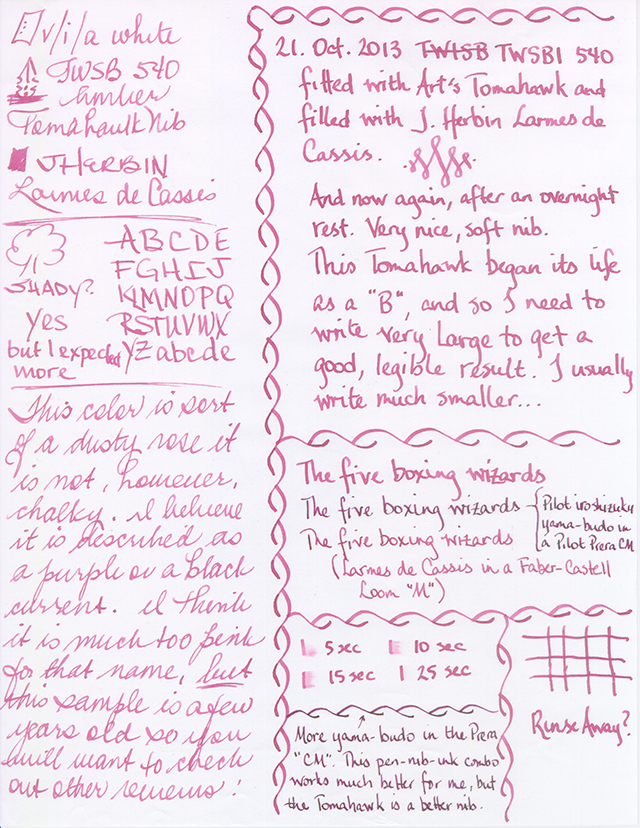 v/i/a white
TWSB 540
Amber
Tomahault Nib
JHERBIN
Larmes de Cassis
SHADY?
Yes
but I expected
more
ABCDE
FGHIJ
KLMNOPQ
RSTUVWX
YZ abcde
This color is sort
of a dusty rose it
is not, however,
chalky. I believe
it is described as
a purple or a black
current. I think
it is much too pink
for that name, but
this sample is a few
years old so you
will want to check
out other reviews!
21. Oct. 2013 TWISB TWSBI 540
fitted with Art's Tomahawk and
filled with J. Herbin Larmes de
Cassis.
And now again, after an overnight
rest. Very nice, soft nib.
This Tomahawk began its life
as a "B", and so I need to
write very Large to get a
good, legible result. I usually
write much smaller...
The five boxing wizards
The five boxing wizards
Pilot iroshizuku
yama-budo in
a Pilot Prera CM
The five boxing wizards
(Larmes de Cassis in a Faber-Castell
Loom "M")
5 sec
10 sec
15 sec
25 sec
More yama-budo in the Prera
"CM". This pen-nib-ink combo
works much better for me, but
the Tomahawk is a better nib.
Rinse Away?